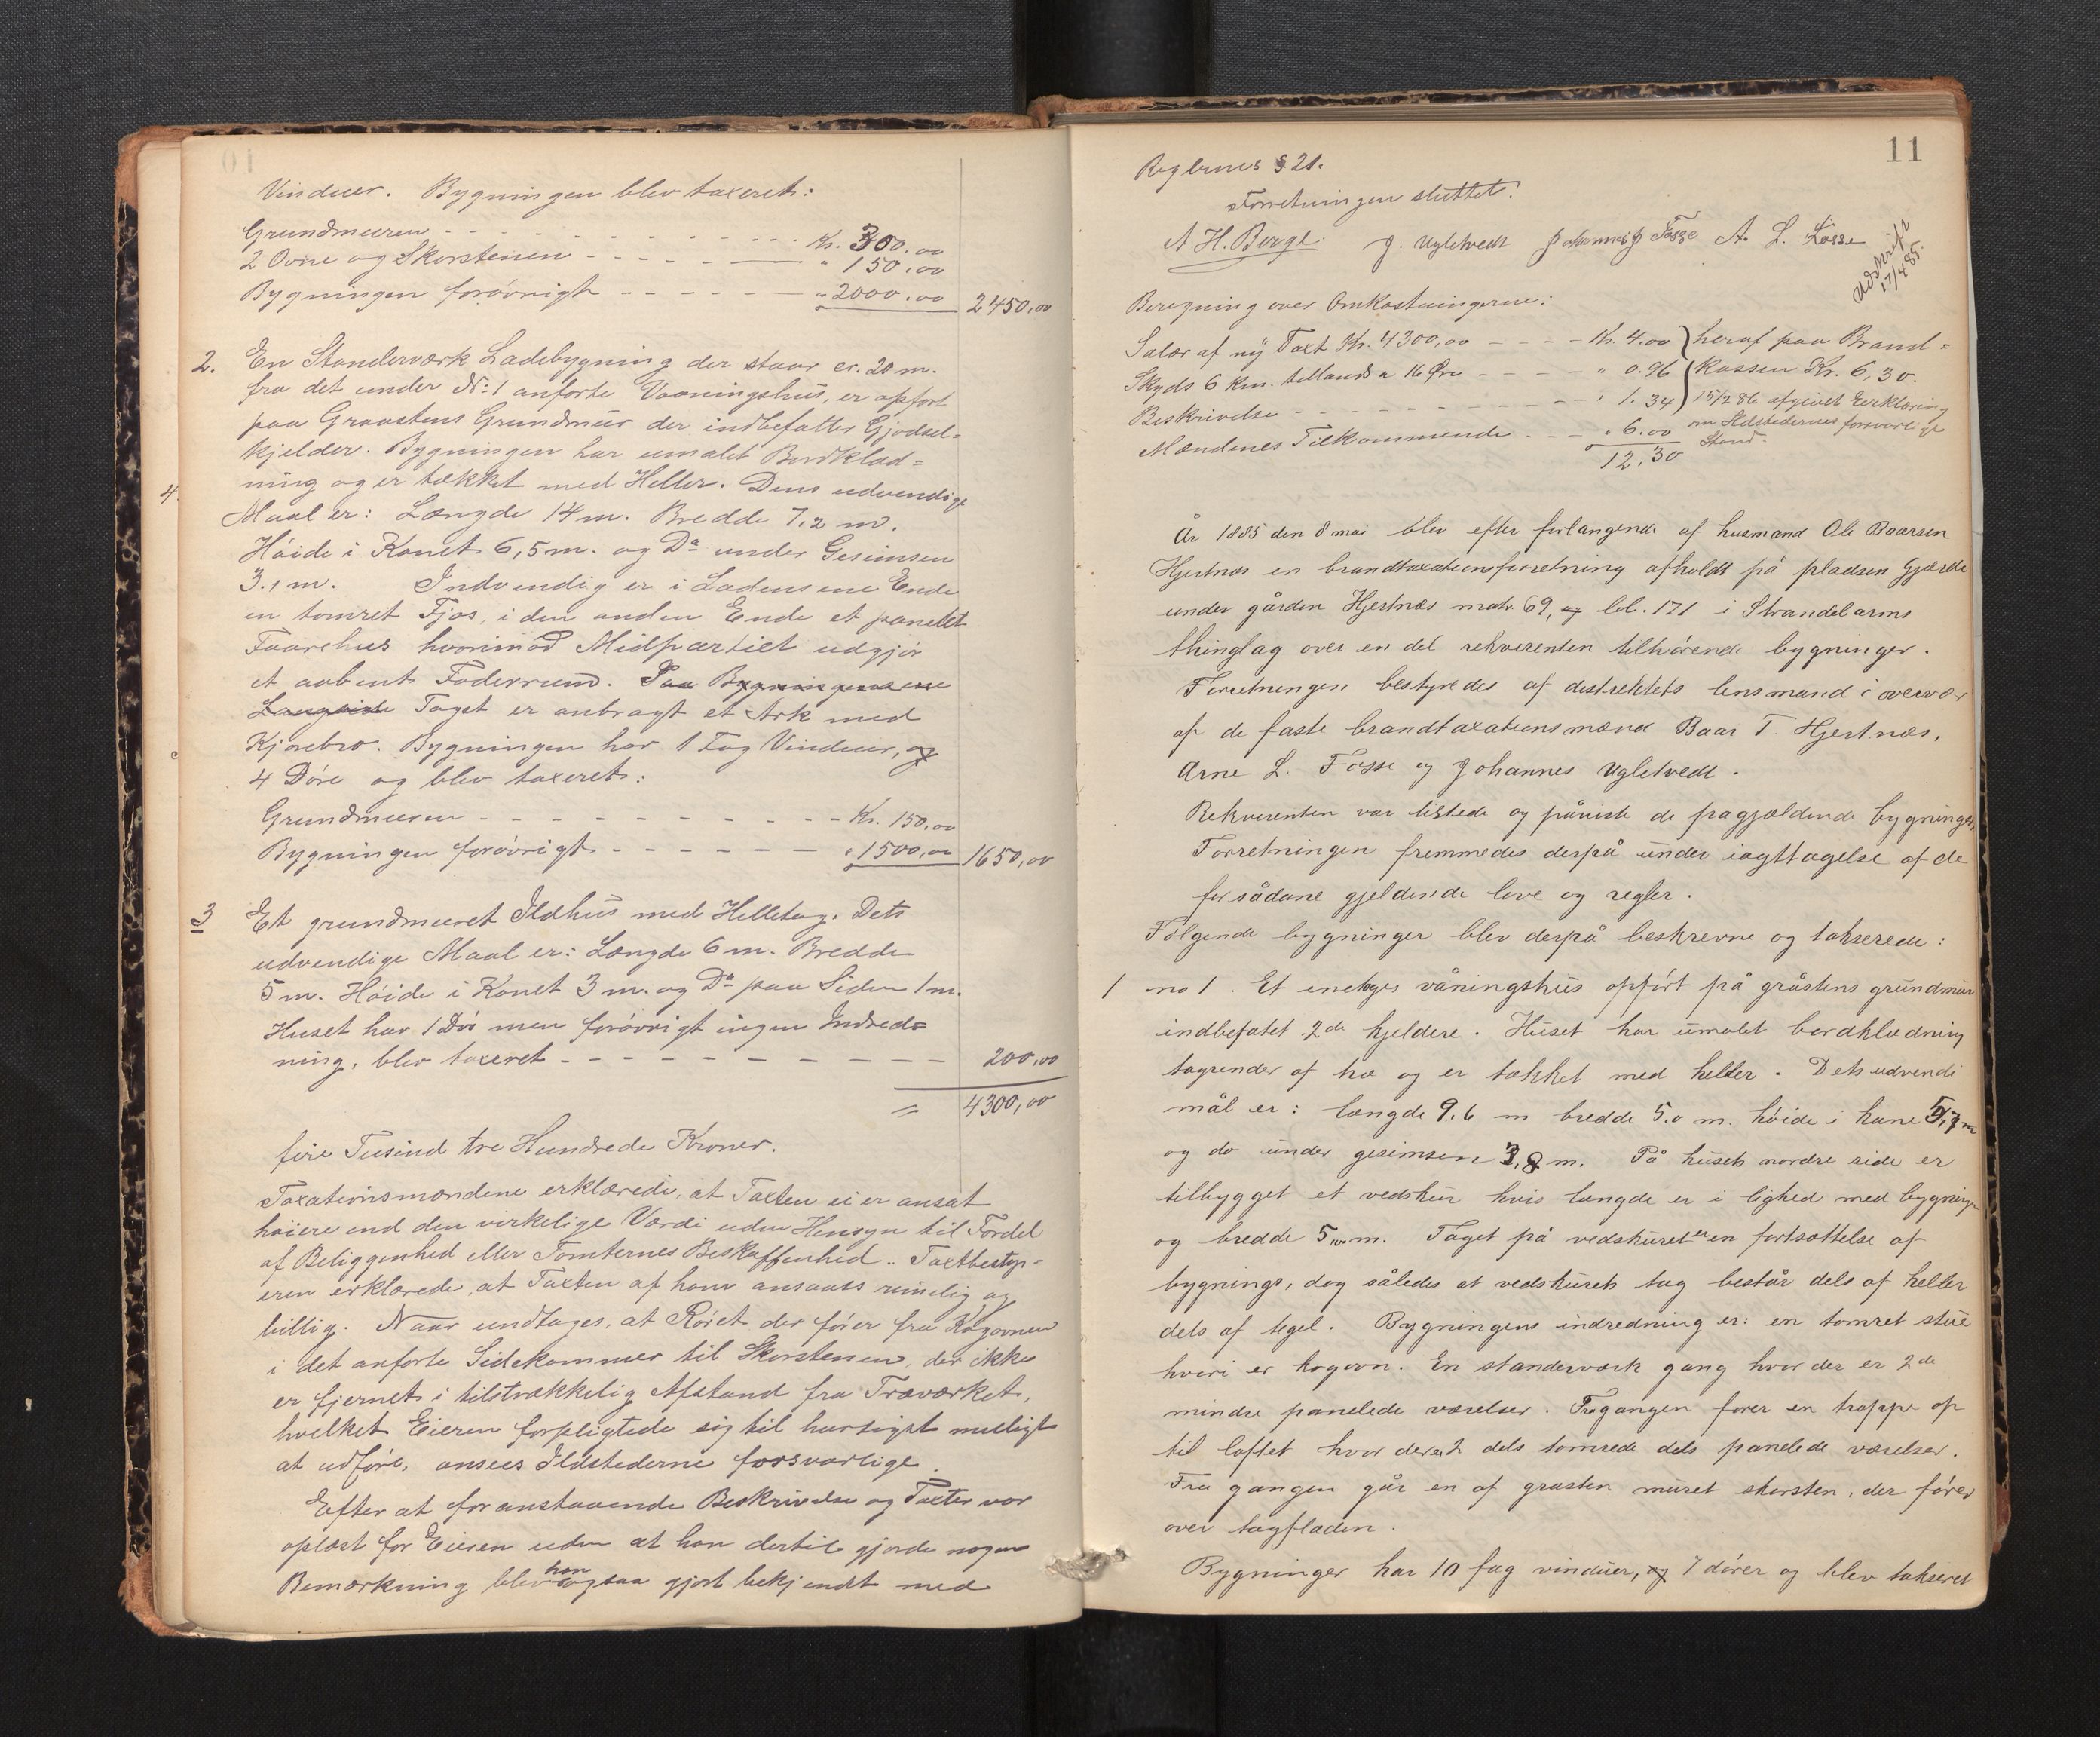 Vinduer. Bygningen blev taxeret:
Grundmuren - - - - - - - - - - Kr. 300.00
2 Ovne og Skorstenen - - - - - " 150.00
Bygningen forøvrigt - - - - - " 2000.00 2450,00
2. En Standerværk Ladebygning der staar cr. 20 m.
fra det under No 1 anførte Vaaningshus, er opført
paa Graastens Grundmur der indbefatter Gjødsel-
kjelder. Bygningen har umalet Bordklæd-
ning og er tækket med Heller. Dens udvendige
4.
Maal er: Længde 14 m. Bredde 7,2 m.
Høide i Rønet 6,5 m. og Do under Gesimsen
3.1 m. Indvendig er i Ladens ene Ende
en tømret Fjøs, i den anden Ende et panelet
Faarehus hvorimod Midtpartiet udgjør
et aabent Foderrum. Paa Bygningens ene
Langside Taget er anbragt et Ark med
Kjørebro. Bygningen har 1 Fag Vinduer, og
4 Døre og blev taxeret:
Grundmuren - - - - - - - - - - Kr. 150,00
Bygningen forøvrigt - - - - - - " 1500,00 1650,00
3 Et grundmuret Ildhus med Helletag. Dets
udvendige Maal er: Længde 6 m. Bredde
5 m. Høide i Rønet 3 m. og Do paa Siden 1 m.
Huset har 1 Dør men forøvrigt ingen Indred-
ning, blev taxeret - - - - - - - - - 200,00
= 4300,00
fire Tusind tre Hundrede Kroner.
Taxationsmændene erklærede, at Taxten ei er ansat
høiere end den virkelige Værdi uden Hensyn til Fordel
af Beliggenhed eller Tomternes Beskaffenhed. Taxtbesty-
eren erklærede, at Taxten af ham ansaaes rimelig og
billig. Naar undtages, at Røret der fører fra Kogovnen
i det anførte Sidekammer til Skorstenen, der ikke
er fjernet i tilstrækkelig Afstand fra Træværket,
hvilket Eieren forpligtede sig til hurtigst muligt
at udføre, ansees Ildstederne forsvarlige.
Efter at foranstaaende Beskrivelse og Taxter var
oplæst for Eieren uden at han dertil gjorde nogen
Bemærkning blev han ogsaa gjort bekjendt med
11
Reglernes § 21.
Forretningen sluttet!
A H. Berge. J. Ugletvedt Johannes J Fosse A. L. Fosse
Udskrift
17/4 85.
Beregning over Omkostningerne:
Salær af ny Taxt Kr. 4300,00 - - - - Kr. 4.00 heraf paa Brand-
Skyds 6 km. tillands a 16 Øre - - - - " 0.96 kassen Kr. 6,30.
Beskrivelse - - - - - - - - - " 1.34 15/2 86 afgivet Erklæring
Mændenes Tilkommende - - - " 6.00 om Ildstedernes forsvarlige
12,30 Stand.
År 1885 den 8 mai blev efter forlangende af husmand Ole Baarsen
Hjertnæs en brandtaxationsforretning afholdt på pladsen Gjærde
under gården Hjertnæs matr. 69, og lbl. 171 i Strandebarms
thinglag over en del rekvirenten tilhørende bygninger.
Forretningen bestyredes af distriktets lensmand i overvær
af de faste brandtaxationsmænd Baar T. Hjertnæs,
Arne L. Fosse og Johannes Ugletvedt.
Rekvirenten var tilstede og påviste de pagjældende bygninger,
Forretningen fremmedes derpå under iagttagelse af de
for sådane gjeldende love og regler.
Følgende bygninger blev derpå beskrevne og takserede:
1 no 1. Et enetages våningshus opført på gråstens grundmur
indbefatet 2de kjeldere. Huset har umalet bordklædning
tagrender af træ og er tækket med heller. Dets udvendi
mål er: længde 9.6 m bredde 5.0 m. høide i røne 5,7 m
og do under gesimsene 3,8 m. På husets nordre side er
tilbygget et vedskur hvis længde er i lighed med bygningen
og bredde 5,10 m. Taget på vedskuret er en fortsættelse af
bygnings, dog således at vedskurets tag består dels af heller
dels af tegel. Bygningens indredning er: en tømret stue
hvori er kogovn. En standerværk gang hvor der er 2de
mindre panelede værelser. Fra gangen fører en trappe op
til loftet hvor der er 2 dels tømrede dels panelede værelser.
Fra gangen går en af gråsten muret skorsten, der fører
over tagfladen.
Bygninger har 10 fag vinduer, og 7 dører og blev takseret